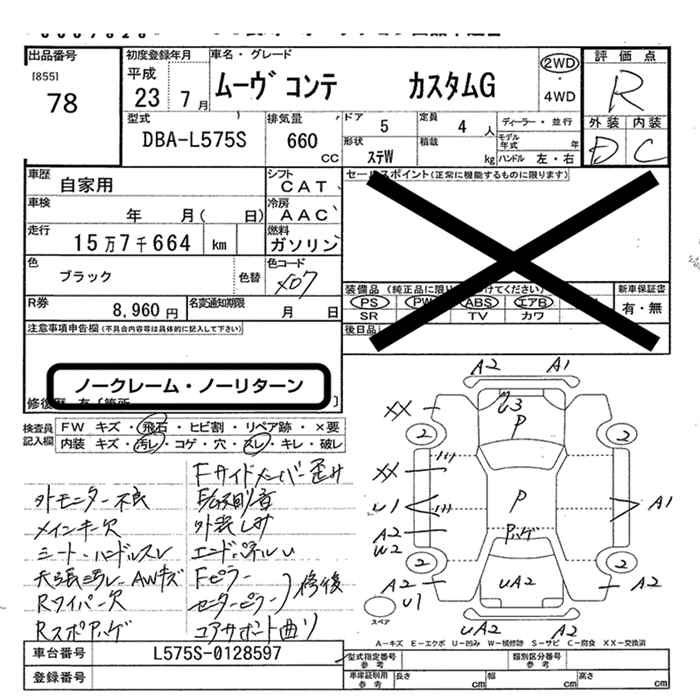 出品番号
[855]
78
初度登録年月
平成
23 7月
車名・グレード
ムーヴ コンテ カスタムG
2WD
・
4WD
評価点
R
外装 内装
D C
型式
DBA-L575S
排気量
660
CC
ドア
5
定員
4 人
ディーラー・並行
形状
ステW
積載
kg
モデル
年式 年
ハンドル 左・右
車歴
自家用
シフト
CAT
車検
年 月( 日)
冷房
AAC
走行
15万7千664 km
燃料
ガソリン
色
ブラック
色替
色コード
X07
R券
8,960 円
名変通知期限
月 日
セールスポイント(正常に機能するものに限ります)
装備品
PS PW ABS エアB
SR TV カワ
新車保証書
有・無
後日品
注意事項申告欄(不具合内容等は具体的に記入して下さい)
ノークレーム・ノーリターン
検査員
記入欄
FW キズ・飛石・ヒビ割・リペア跡・×要
内装 キズ・汚レ・コゲ・穴・スレ・キレ・破レ
Fサイドメンバー歪み
外モニター不良
メインキー欠
外装しみ
シート・ハンドルスレ
エンドパネルU
天張汚レ AWキズ
Fピラー
修復
Rワイパー欠
センターピラー
Rスポハゲ
コアサポート曲り
A2 A1
XX
U3
P
2 2
XX
U1
P
A1
A2
W2
P,ハゲ
2 2
A2
U1
UA2
A2
スペア
UA2 A2
A-キズ E-エクボ U-凹み W-補修跡 S-サビ C-腐食 XX-交換済
車台番号
L575S-0128597
型式指定番号
参考
類別区分番号
参考
登録番号
車庫証明用
参考
長さ
cm
幅
cm
高さ
cm